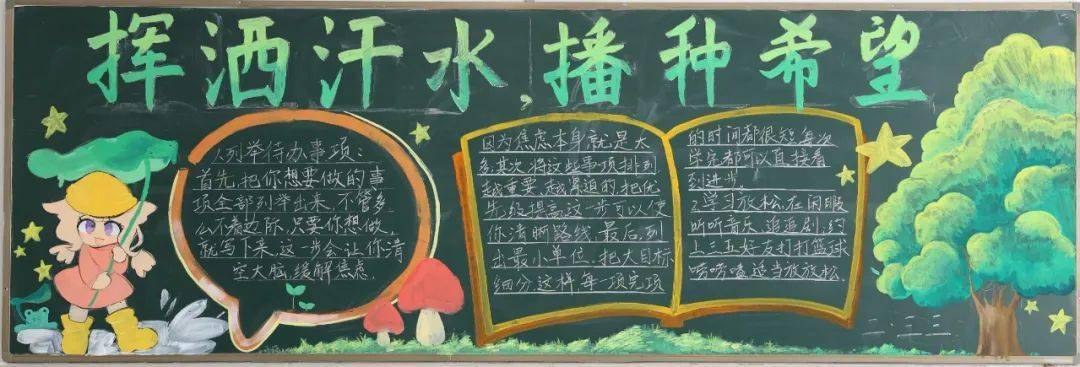 挥洒汗水,播种希望
1.列举待办事项:
首先,把你想要做的事
项全部列举出来,不管多
么不着边际,只要你想做,
就写下来,这一步会让你清
空大脑,缓解焦虑.
因为焦虑本身就是太
多.其次,将这些事项排列
越重要,越紧迫的,把优
先级提高,这一步可以使
你清晰路线.最后,列
出最小单位,把大目标
细分,这样每一项完项
的时间都很短,每次
学完都可以直接看
到进步.
2.学习放松,在闲暇
听听音乐,追追剧,约
上三五好友打打篮球
唠唠嗑,适当放放松.
二.三三